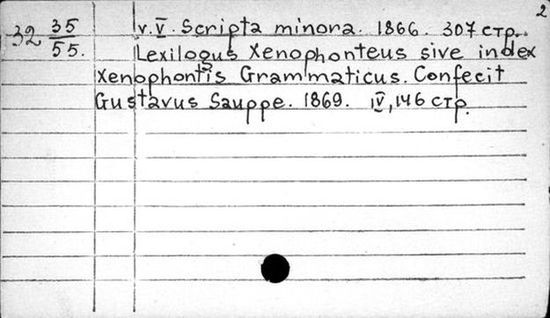 2
32 35/55. v. V. Scripta minora. 1866. 307 стр.
Lexilogus Xenophonteus sive index
Xenophontis Grammaticus. Confecit
Gustavus Sauppe. 1869. IV, 146 стр.